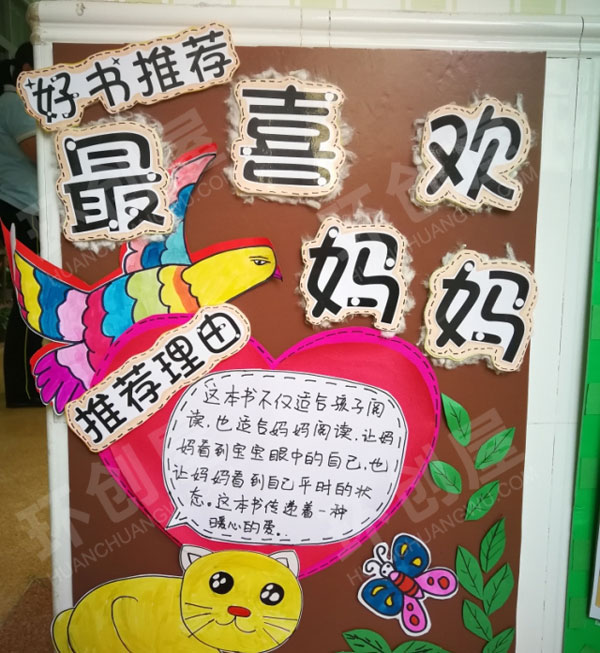 好书推荐
最喜欢
妈妈
推荐理由
这本书不仅适合孩子阅
读,也适合妈妈阅读,让妈
妈看到宝宝眼中的自己,也
让妈妈看到自己平时的状
态。这本书传递着一种
暖心的爱..
环创屋
HUANCHUANGWU.COM